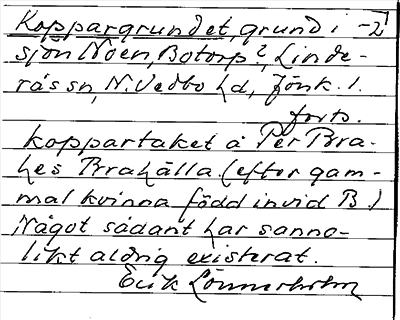 Koppargrundet, grund i -2
sjön Noen, Botorp?, Linde-
rås sn, N. Vedbo hd, Jönk. l.
forts.
koppartaket å Per Bra-
hes Brahälla. (efter gam-
mal kvinna född invid B.)
Något sådant har sanno-
likt aldrig existerat.
Erik Lönnerholm